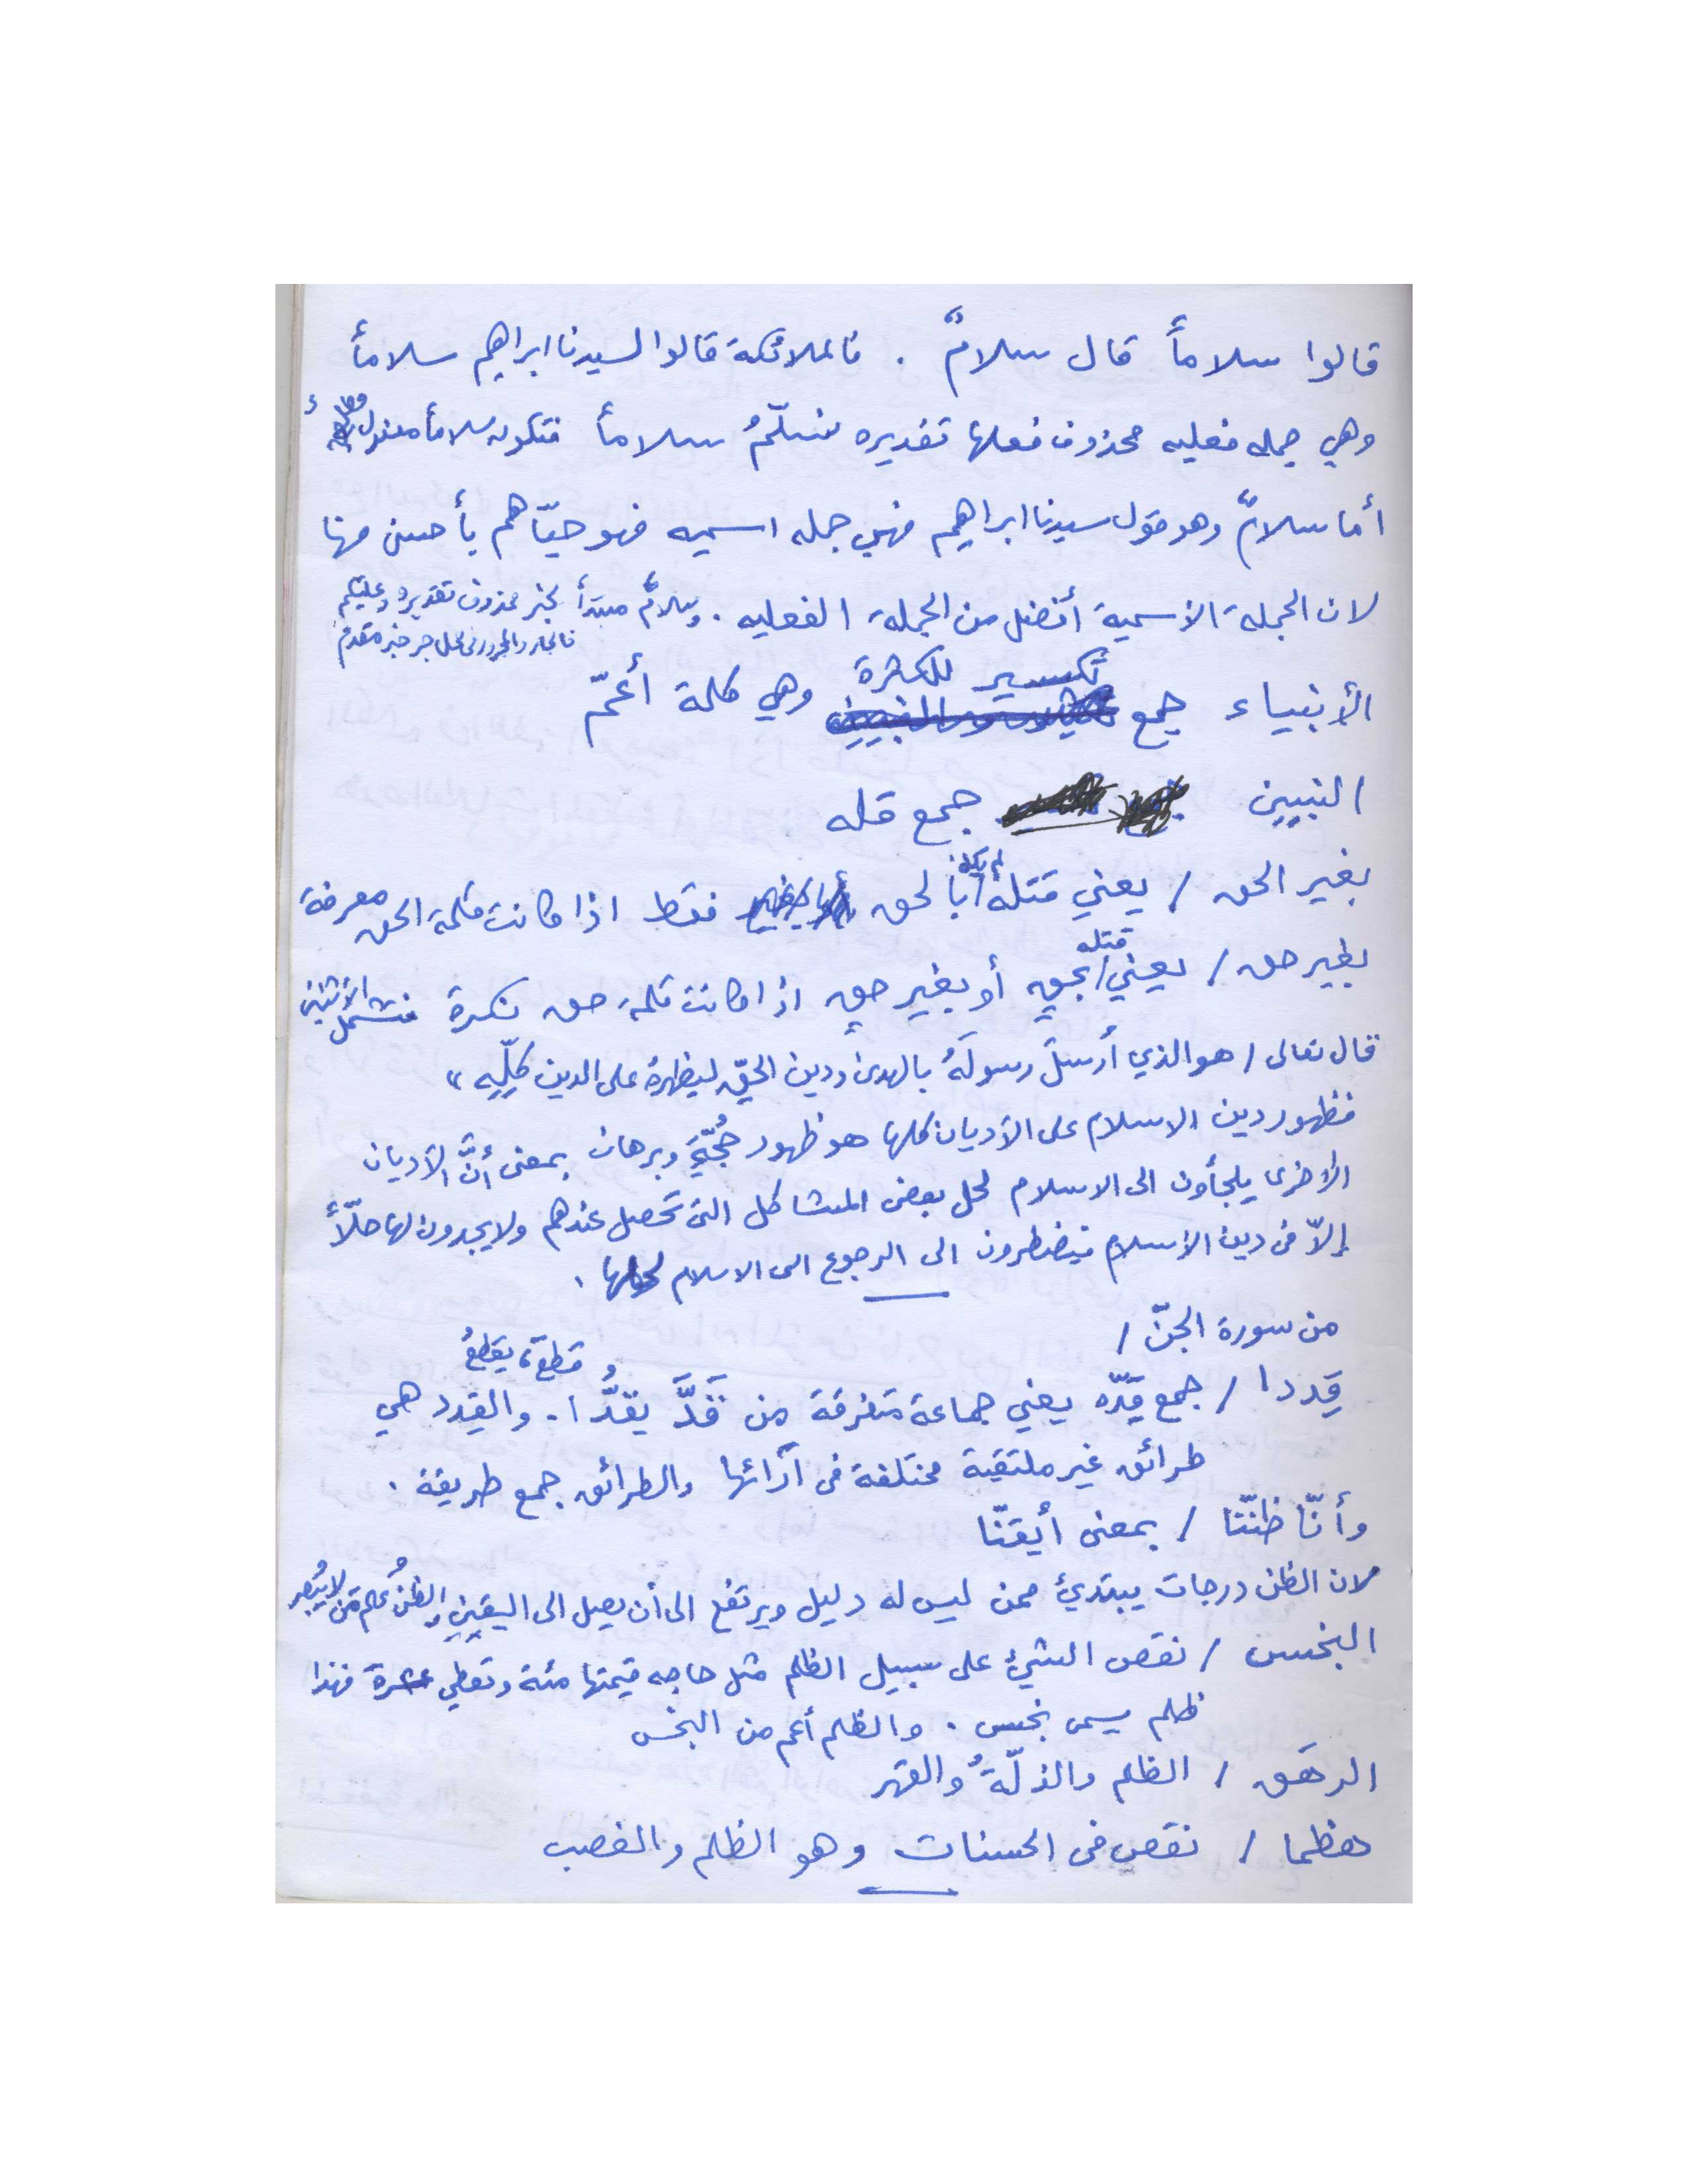 قالوا سلاماً قال سلامٌ . فالملائكة قالوا لسيدنا ابراهيم سلاماً
وهي جمله فعليه محذوف فعلها تقديره نسلّمُ سلاماً فتكون سلاماً مفعول
أما سلامٌ وهو قول سيدنا ابراهيم فهي جمله اسميه فهو حيّاهم بأحسن منها
لان الجملة الأسمية أفضل من الجملة الفعليه . وسلامٌ مبتدأ لخبر محذوف تقديره وعليكم
فالجار والمجرور في محل جر خبر مقدم
الأنبياء جمع تكسير للكثرة وهي كلمة أعمّ
النبيين جمع قله
بغير الحق / يعني قتله لم يكن بالحق فقط اذا كانت كلمة الحق معرفة
بغير حق / يعني قتله بحقٍ أو بغير حقٍ اذا كانت كلمة حق نكرة فتشمل الأثنين
قال تعالى / هو الذي أرسلَ رسولَهُ بالهدى ودين الحقِّ ليظهرهُ على الدين كلِّهِ "
فظهور دين الاسلام على الأديان كلها هو ظهور حُجّةٍ وبرهان بمعنى أنَّ الأديان
الأخرى يلجأون الى الاسلام لحل بعض المشاكل التي تحصل عندهم ولا يجدون لها حلّاً
إلاّ في دين الإسلام فيضطرون الى الرجوع الى الاسلام لحلها .
من سورة الجنّ /
قِددا / جمع قِدّه يعني جماعة متفرقة من قَدَّ يقدُّ ا . والقِدد هي
و قطعَ ، يقطعُ
طرائق غير ملتقية مختلفة في آرائها والطرائق جمع طريقة .
وأنّا ظننّا / بمعنى أيقنّا
لان الظن درجات يبتدئ ممن ليس له دليل ويرتفع الى أن يصل الى اليقينِ والظنُ علم من لا يُبصر
البخس / نقص الشيئ على سبيل الظلم مثل حاجه قيمتها مئة وتعطي عشرة فهذا
ظلم يسمى بخس . والظلم أعم من البخس
الرهَق / الظلم والذلّةُ والقهر
هظما / نقص في الحسنات وهو الظلم والغصب